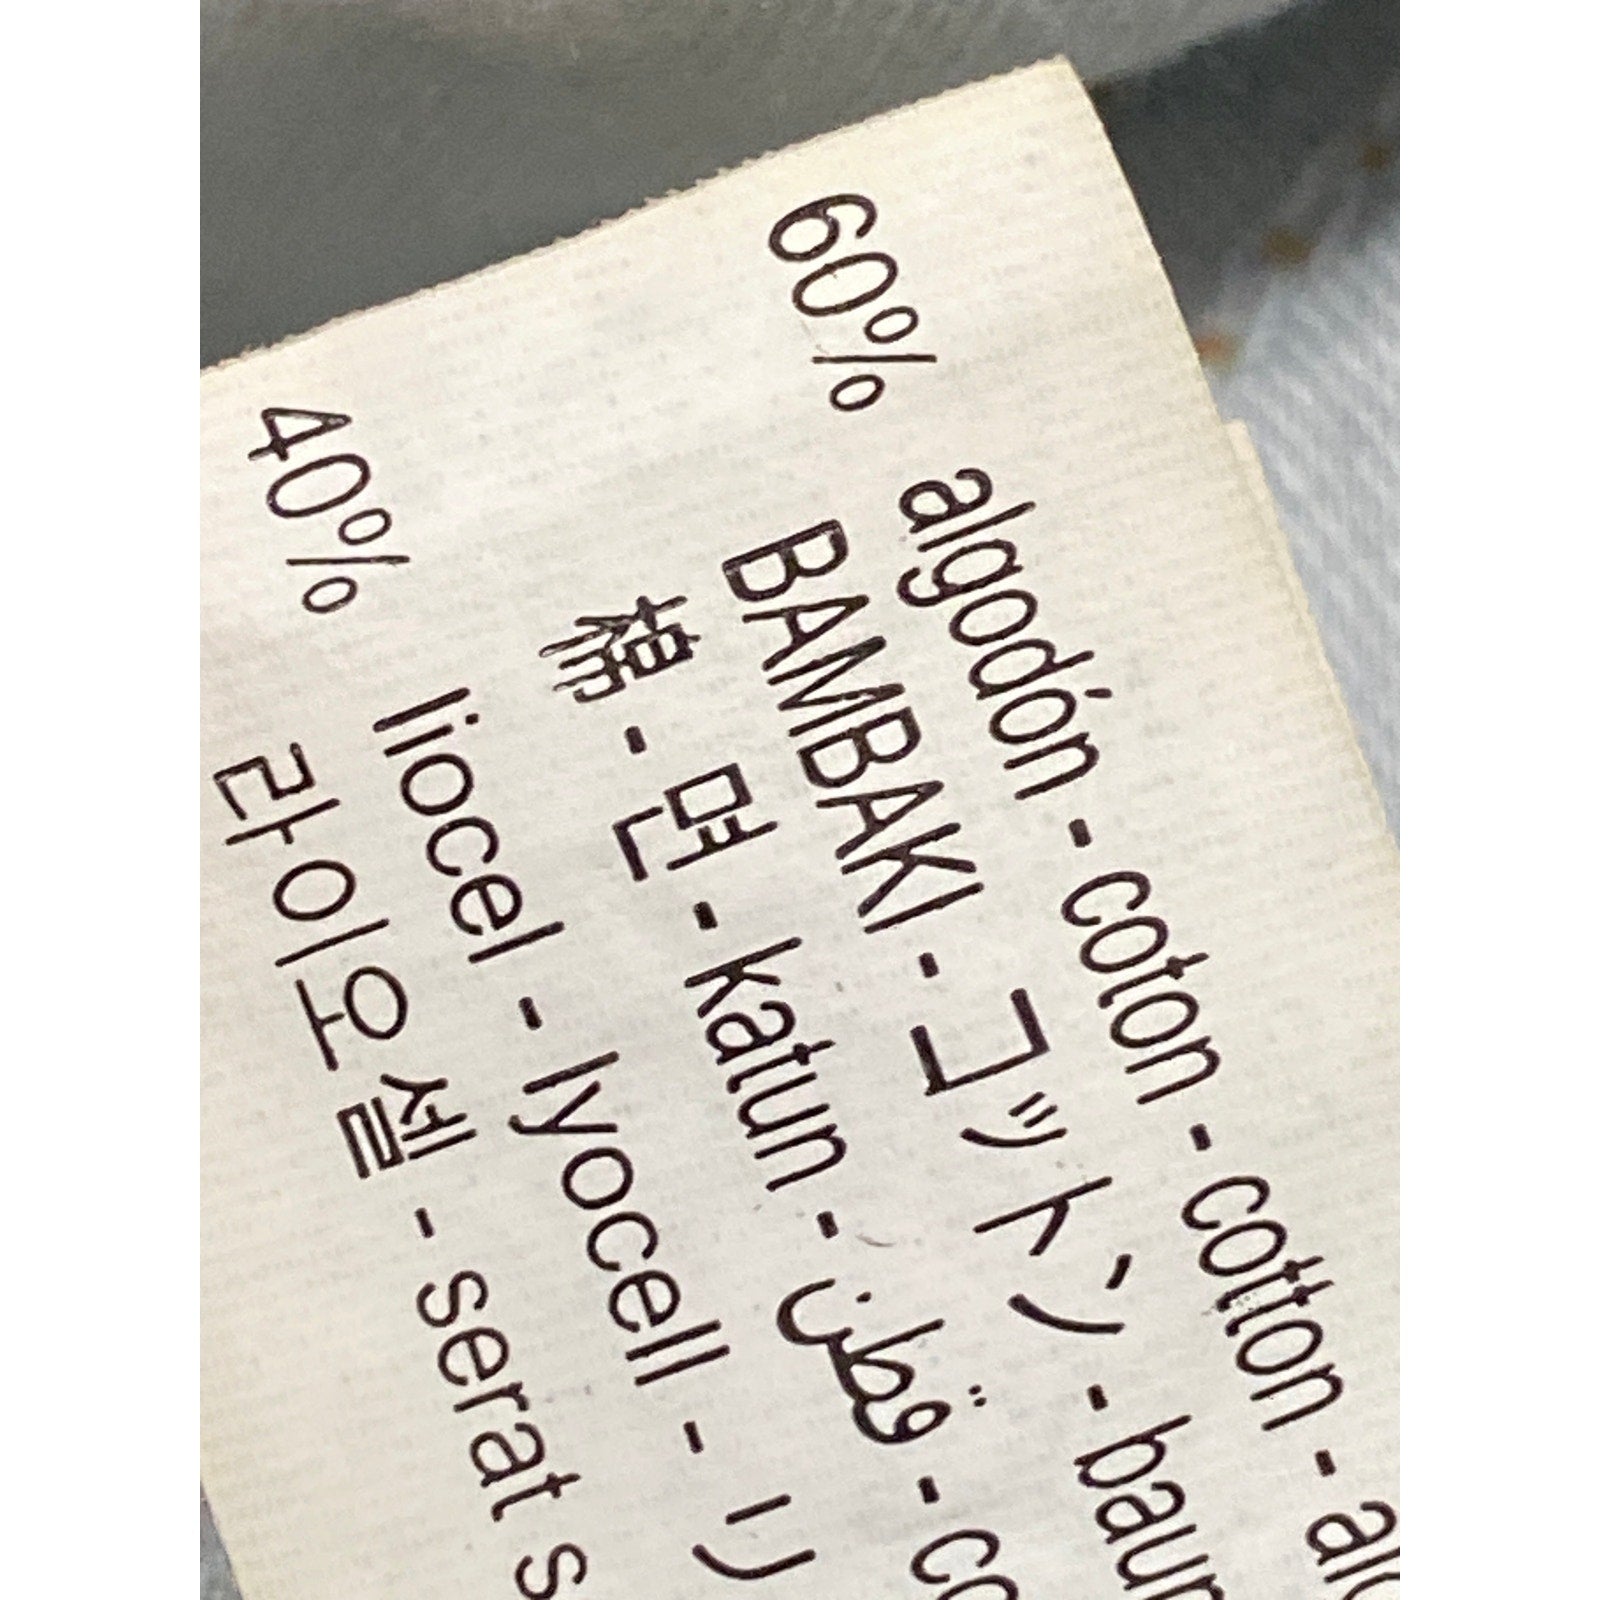 60% algodón - coton - cotton - alg
BAMBAKI - コットン - baum
棉 - 면 - katun - قطن - co
40% liocel - lyocell - リ
라이오셀 - serat s